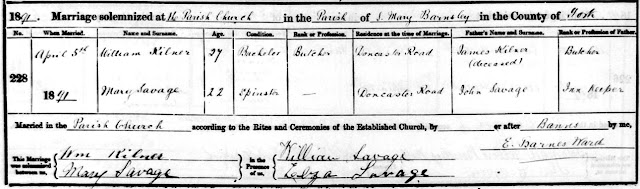 1891. Marriage solemnized at the Parish Church in the Parish of S. Mary Barnsley in the County of York
No. When Married. Name and Surname. Age. Condition. Rank or Profession. Residence at the time of Marriage. Father's Name and Surname. Rank or Profession of Father.
228 April 5th William Kilner 27 Bachelor Butcher Doncaster Road James Kilner (deceased) Butcher
1891 Mary Savage 22 Spinster — Doncaster Road John Savage Inn Keeper
Married in the Parish Church according to the Rites and Ceremonies of the Established Church, by or after Banns by me,
E. Barnes Ward
This Marriage was solemnized between us, Wm Kilner Mary Savage in the Presence of us, William Savage Savage